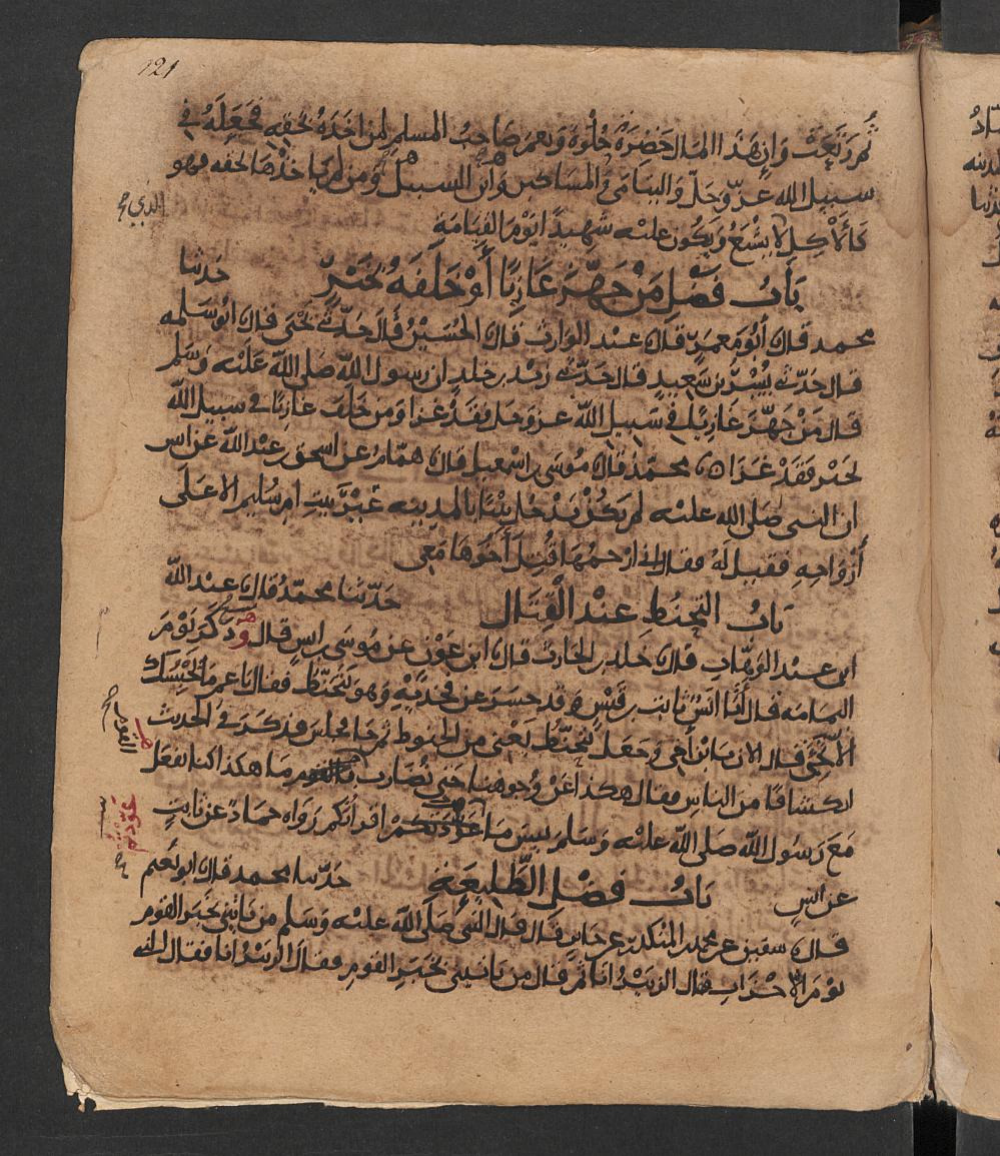 121
ثُم رَتَعَتْ وَاِن هَذَا المال خَضرَةٌ حُلوَةٌ وَنعمَ صَاحِبُ المسلم لمن اخَذَهُ بحَقِهِ فَجَعَلَهُ في
سبيل الله عزّ وجلّ واليتامى والمساكين وابن السبيل ومن لم ياخذها بحقه فهو
الذي
كالاكِلِ لا يشْبَعُ وَيَكُون عليه شهيدًا يوم القيامَةِ
بَابُ فَضْلِ مَنْ جَهَّزَ غَازِيًا أَوْ خَلَفَهُ بخَيْرٍ حدثنا
محمد قال أَبُو مَعمَرٍ قال عبد الوارث قال الحُسَيْنُ قَالَ حَدّثَني يحْيَى قال ابُو سَلمه
قال حَدّثَني بُسْرُ بن سَعِيدٍ قال حَدّثَني زيد بن خلد ان رسول الله صَلى الله عَلَيْه وَسَلم
قال مَنْ جَهَّزَ غَازِيًا في سَبيل الله عز وجل فقَدْ غَزا وَمن خلَف غازيًا في سبيل الله
بخَيْر فَقَدْ غَزَا ۝ محمّدٌ قال مُوسَى بن اسْمعيل قال همّامٌ عن اسحق بن عبْد الله عن انس
ان النبى صَلى الله عليه لم يَكُنْ يَدْخل بَيْتًا بالمدينه غَيْرَ بَيت ام سُليم الا عَلَى
أَزْوَاجِهِ فقيل لهُ فقال اني ارْحمُهَا قُتِلَ أَخُوهَا مَعِى
بَابُ التحنُّطِ عندَ الْقِتَال حَدّثنا محمّدٌ قال عبْد الله
ابن عبْد الوَهّاب قال خلد بن الحارث قال ابن عَوْنٍ عن مُوسَى بن انس قال وَذَكَرَ يَوْمَ
اليمامه قال أَتَا انَسٌ ثابت بن قَيْس وَقد حسَرَ عن فخذَيْهِ وَهو يَتَحَنّطُ فقال يا عم مَا يَحْبِسُك
الّا تَجِىَ قال الان يَابْن أَخِى وَجَعَل يَتَحَنّطُ يَعْنى من الحنوط ثم جَا فجلس فذكَرَ في الحديث
انكشافًا من الناس فقال هكذا عَنْ وُجوهنا حَتى نُضَارب القوم مَا هكذا كنا نفعَل
مَعَ رَسُول الله صَلى الله عليْه وَسَلم بيسَ مَا عَوَّدَكم اقرانكم رَوَاه حمادٌ عن ثابتٍ
عَوَّدتُم
عن انسٍ
بَابُ فَضْل الطَّلِيعَةِ حَدّثنا محمد قال ابو نُعَيم
قال سفين عن محمد بن المنكدر عن جَابر قال قال النبى صَلّى الله عليْه وَسَلم من يَاتيني بخَبر القوم
يوْمَ الاحْزَاب قال الزبَيْرُ انا ثم قال من يَاتيني بخَبَر القوم فقال الزبَيْرُ انا فقال النبى